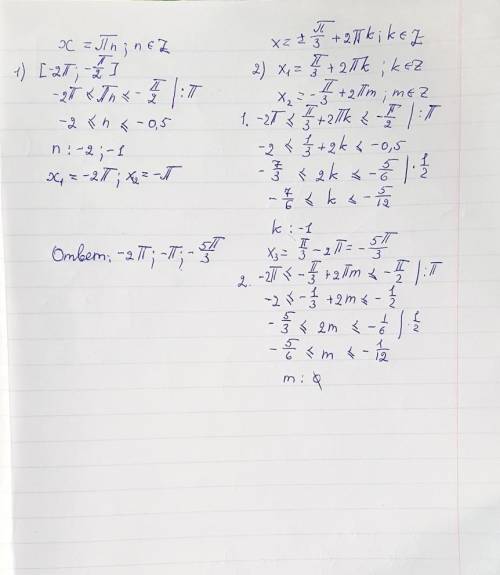 x = πn ; n ∈ Z
1) [-2π; -π/2]
-2π ⩽ πn ⩽ -π/2 | :π
-2 ⩽ n ⩽ -0,5
n : -2 ; -1
x₁ = -2π ; x₂ = -π
Ответ: -2π ; -π ; -5π/3
x = ± π/3 + 2πk ; k ∈ Z
2) x₁ = π/3 + 2πk ; k ∈ Z
x₂ = -π/3 + 2πm ; m ∈ Z
1. -2π ⩽ π/3 + 2πk ⩽ -π/2 | :π
-2 ⩽ 1/3 + 2k ⩽ -0,5
-7/3 ⩽ 2k ⩽ -5/6 | · 1/2
-7/6 ⩽ k ⩽ -5/12
k : -1
x₃ = π/3 - 2π = -5π/3
2. -2π ⩽ -π/3 + 2πm ⩽ -π/2 | :π
-2 ⩽ -1/3 + 2m ⩽ -1/2
-5/3 ⩽ 2m ⩽ -1/6 | · 1/2
-5/6 ⩽ m ⩽ -1/12
m : ∅